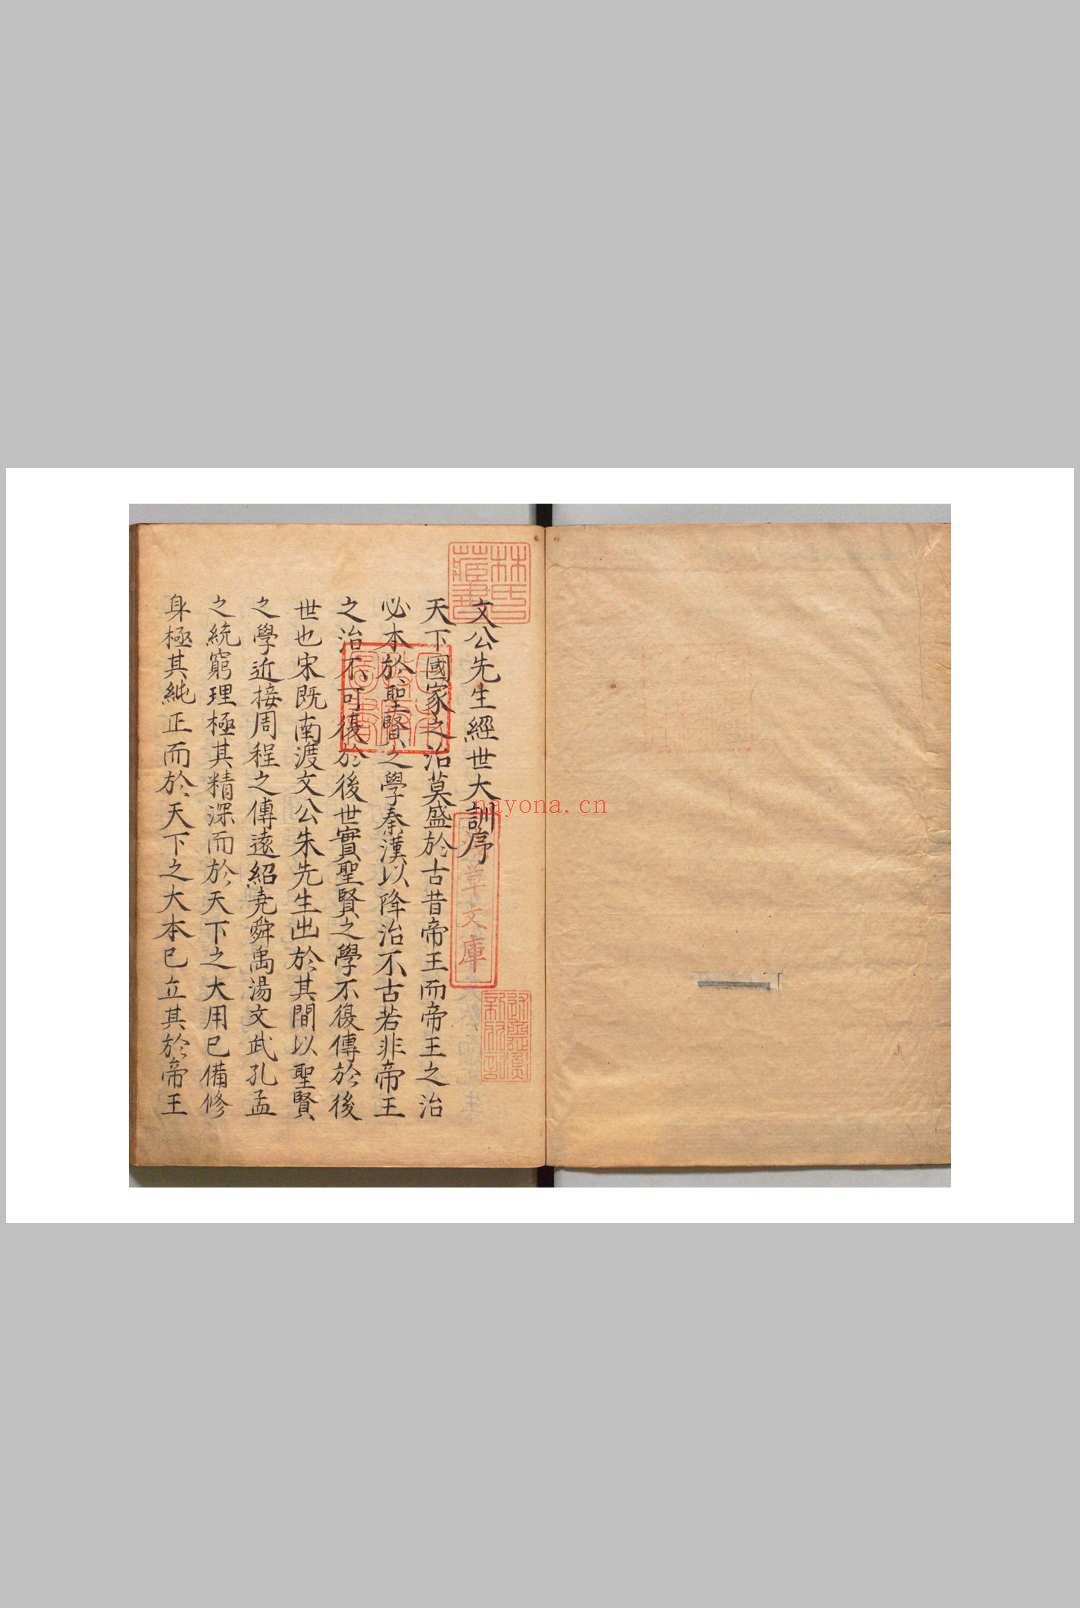 文公先生經世大訓序
天下國家之治莫盛於古昔帝王而帝王之治
必本於聖賢之學秦漢以降治不古若非帝王
之治不可復於後世實聖賢之學不復傳於後
世也宋既南渡文公朱先生出於其間以聖賢
之學近接周程之傳遠紹堯舜禹湯文武孔孟
之統窮理極其精深而於天下之大用已備修
身極其純正而於天下之大本已立其於帝王
林氏藏書
文庫
nayona.cn